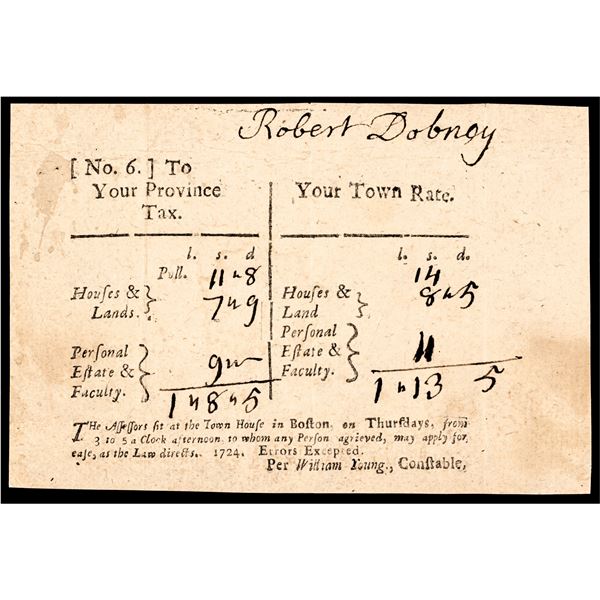 Robert Dobney
[ No. 6. ] To
Your Province
Tax.
l. s. d
Poll. 11 " 8
Houſes &
Lands. } 7 " 9
Perſonal
Eſtate &
Faculty. } 9 "
1 " 8 " 5
Your Town Rate.
l. s. d.
14
Houſes &
Land } 8 " 5
Perſonal
Eſtate &
Faculty. } 11
1 " 13 5
THe Aſſeſſors ſit at the Town Houſe in Boſton, on Thurſdays, from
3 to 5 a Clock afternoon, to whom any Perſon agrieved, may apply for
eaſe, as the Law directs. 1724. Errors Excepted.
Per William Young., Conſtable,